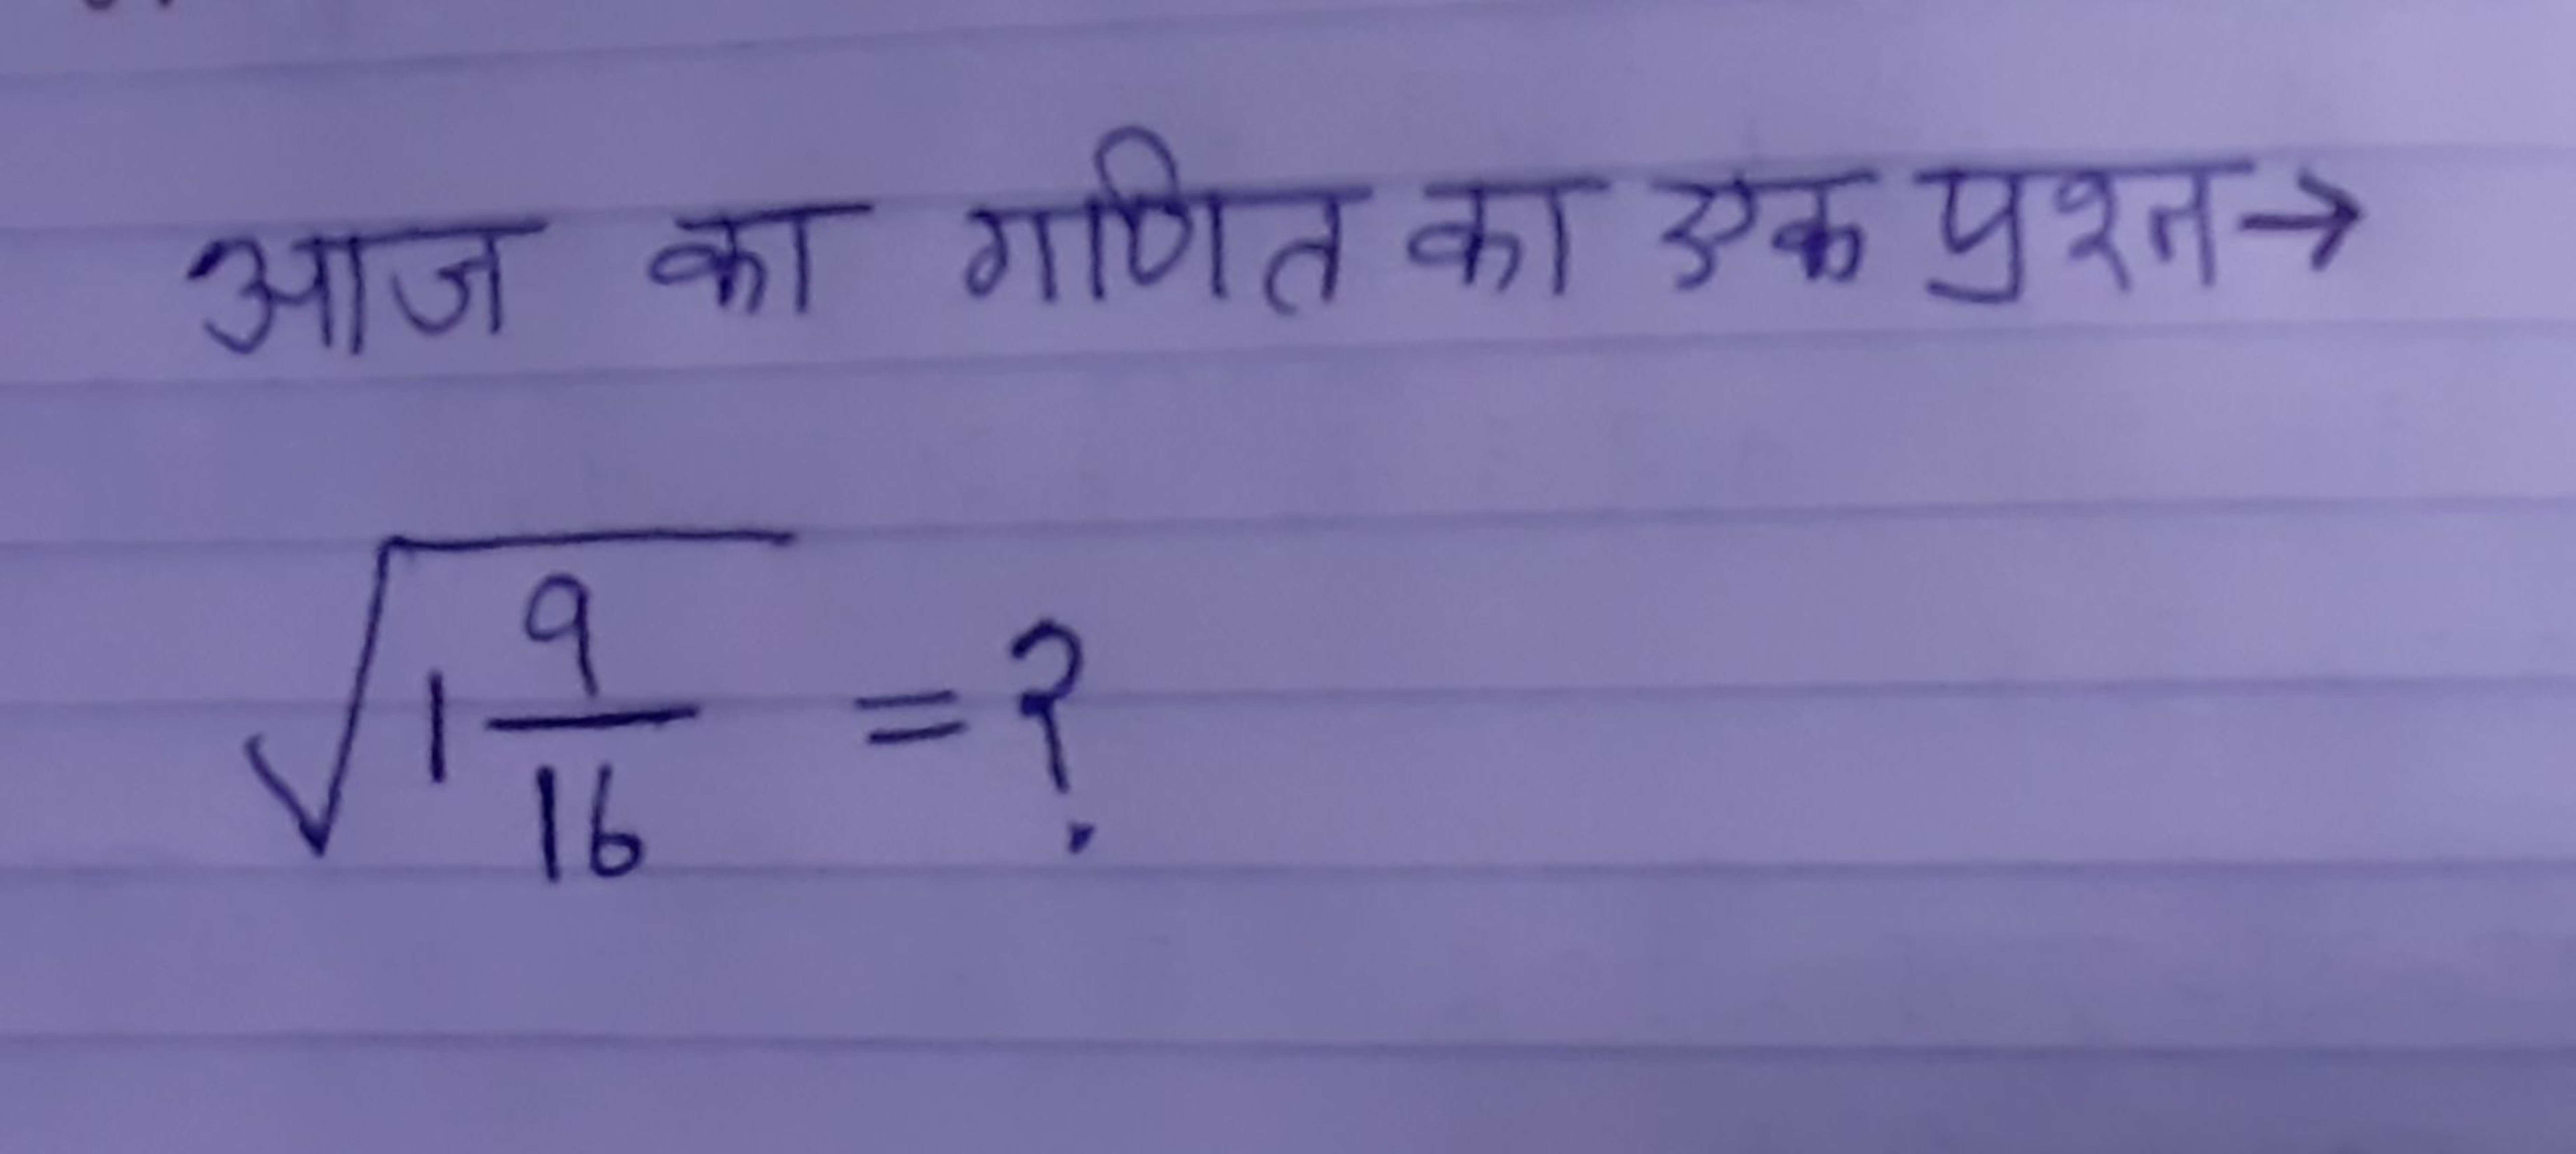 आज का गणित का एक प्रश्न→
√1 9/16 = ?